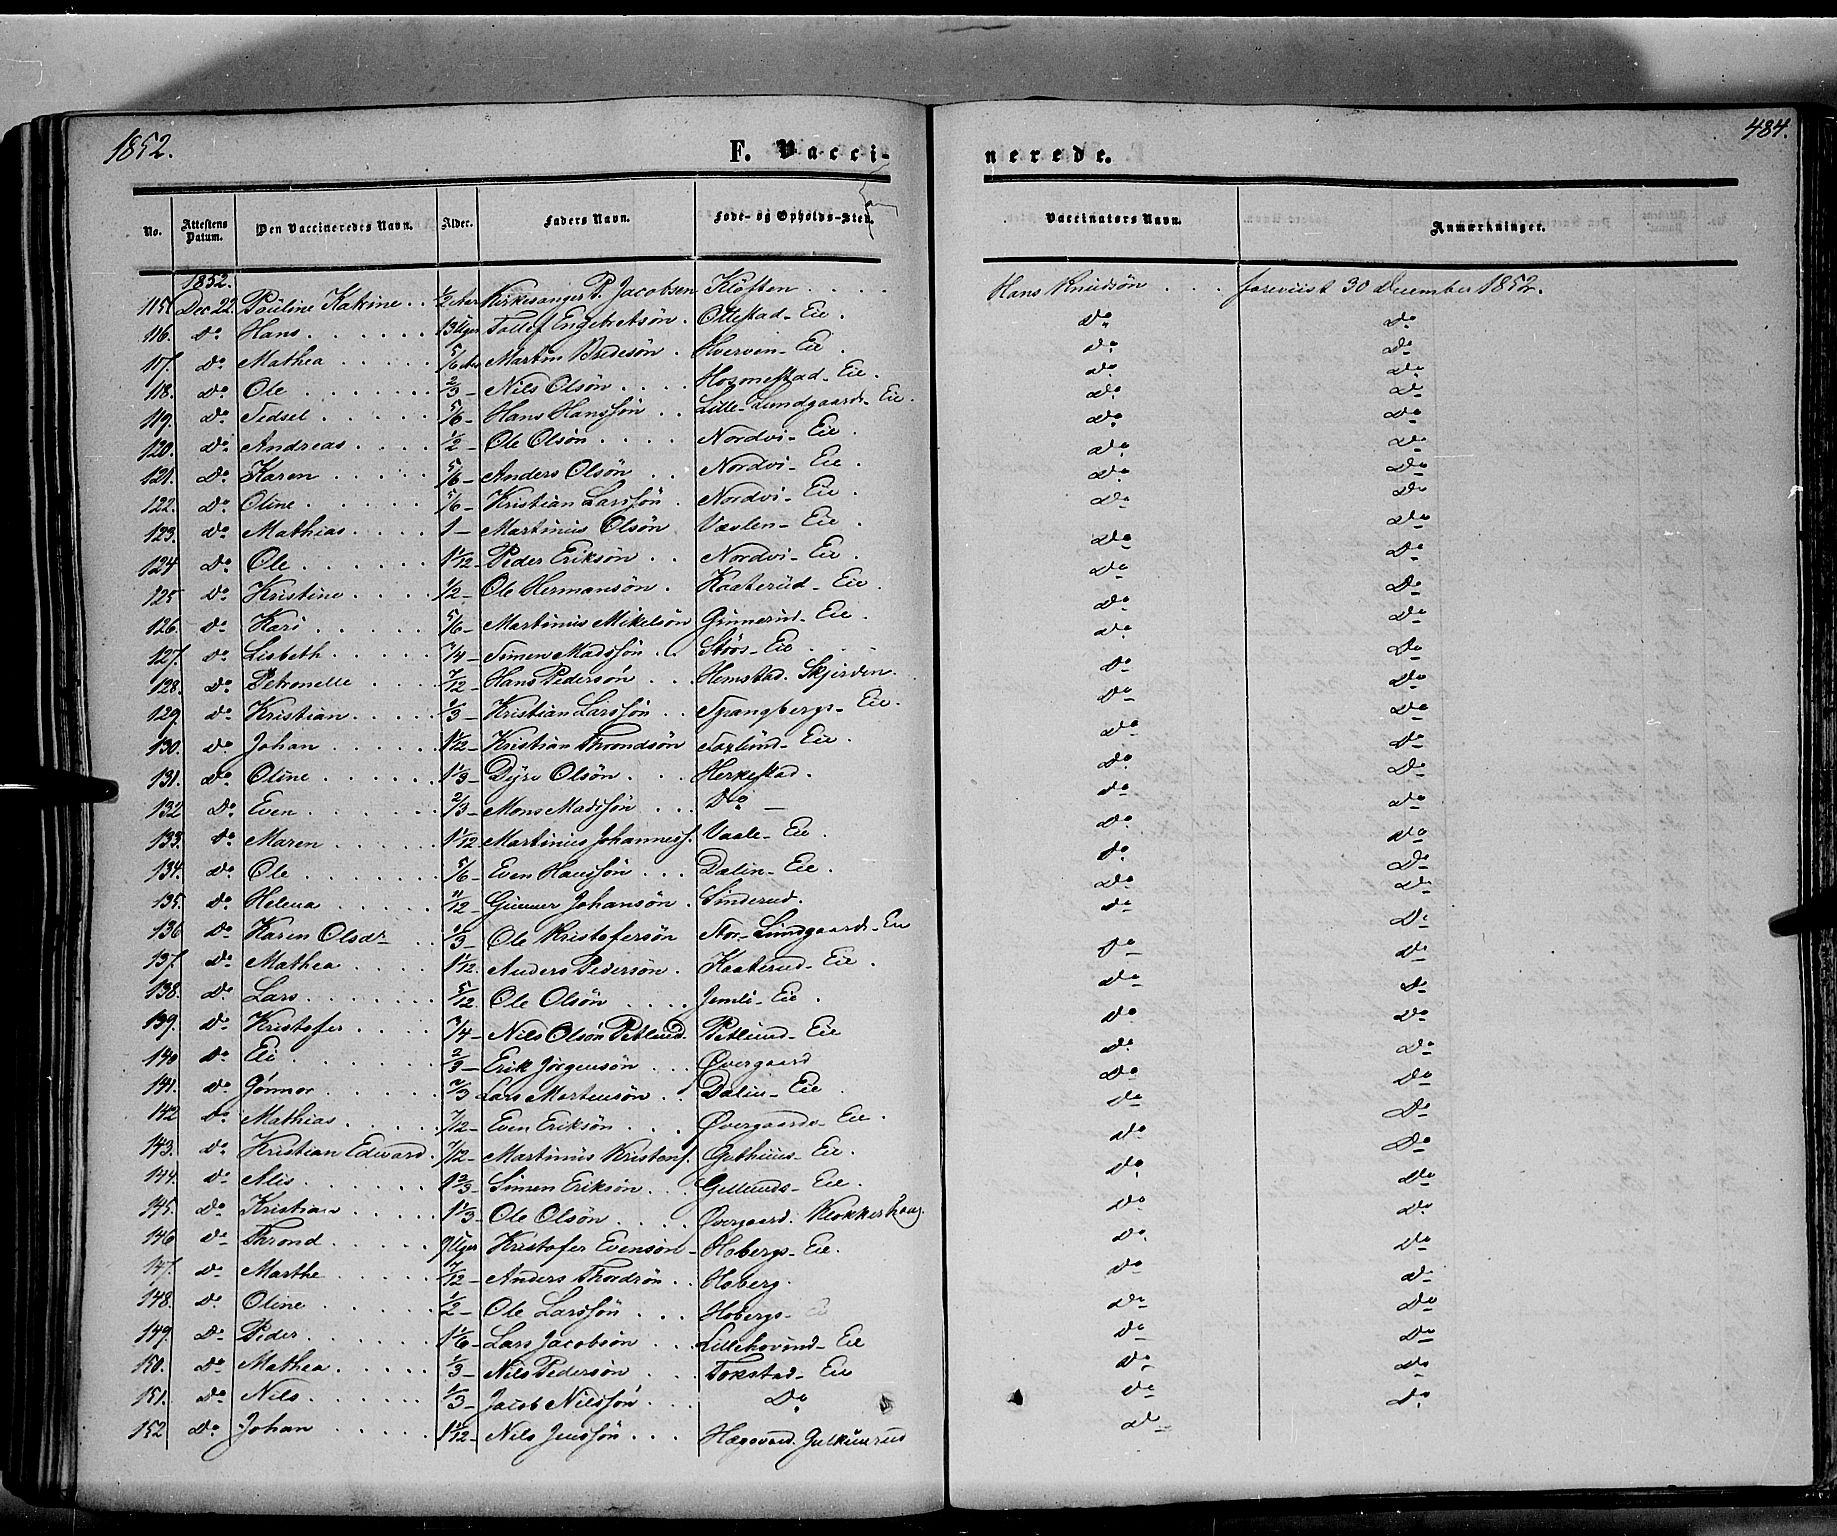 1852.
F. Vacci-
nerede.
484.
No. Attestens Datum. Den Vaccineredes Navn. Alder. Faders Navn. Føde- og Opholds-Sted. Vaccinators Navn. Anmærkninger.
1852.
115 Dec 22. Pauline Katrine . . 1/2 Aar Kirkesanger P. Jacobsen Kløften . . . . Hans Knudsøn . . . foreviist 30 December 1852.
116. Do Hans . . . . . . 13 Uger Tollef Engebretsøn . Ottestad- Eie . Do Do
117. Do Mathea . . . . . 5/6 Aar Martin Bredesøn . Hverven- Eie . Do Do
118. Do Ole . . . . . . . 2/3 - Nils Olsøn . . . . Hosmestad- Eie . Do Do
119. Do Sidsel . . . . . . 5/6 - Hans Hansøn . . Lille- Lundgaards- Eie. Do Do
120. Do Andreas . . . . 1/2 - Ole Olsøn . . . . Nordvi- Eie . Do Do
121. Do Karen . . . . . . 5/6 - Anders Olsøn . . Nordvi- Eie . Do Do
122. Do Oline . . . . . . 5/6 - Kristian Larssøn . Nordvi- Eie . Do Do
123. Do Mathias . . . . 1 - Martinius Olsøn Væslen- Eie . Do Do
124 Do Ole . . . . . . . 1 1/12 - Peder Eriksøn . . Nordvi- Eie . Do Do
125 Do Kristine . . . . . 1/2 - Ole Hermansøn . Kaaterud- Eie . Do Do
126. Do Kari . . . . . . 5/6 - Martinus Mikelsøn Gunnerud- Eie . Do Do
127. Do Lisbeth . . . . . 3/4 - Simen Madssøn . . Støes- Eie . Do Do
128. Do Petronelle . . . . 7/12 - Hans Pedersøn . . Hemstad. Skjerden . Do Do
129. Do Kristian . . . . . 1/3 - Kristian Larssøn . . Spangbergs- Eie . Do Do
130. Do Johan . . . . . . 1 1/12 - Kristian Throndsøn Saxlund- Eie . Do Do
131. Do Oline . . . . . . 1 1/3 - Dyre Olsøn . . . Herkestad . Do Do
132 Do Even . . . . . . 2/3 - Mons Madssøn . . . Do - Do Do
133. Do Maren . . . . . 1 1/12 - Martinius Johanness. Vaale- Eie . Do Do
134. Do Ole . . . . . . . 5/6 - Even Hanssøn . . . Dalin- Eie . Do Do
135. Do Helena . . . . . 11/12 - Gunner Johansøn . Sinderud . Do Do
136 Do Karen Olsdr . . 1/3 - Ole Kristofersøn Stor- Lundgaards- Eie Do Do
137. Do Mathea . . . . . 1 1/12. Anders Pedersøn . Kaaterud- Eie . Do Do
138. Do Lars . . . . . . 5/12. Ole Olsøn . . . . Jemli- Eie . Do Do
139. Do Kristofer . . . . 3/4 - Nils Olsøn Petlund. Petlund- Eie Do Do
140 Do Eli . . . . . . . 2/3 - Erik Jørgensøn . . . Øvergaard Do Do
141. Do Gønnor . . . . . 2/3 Lars Mortensøn . . Dalin- Eie . Do Do
142 Do Mathias . . . . . 7/12 - Even Eriksøn . . . Øvergaards- Eie . Do Do
143. Do Kristian Edward . 7/12 - Martinus Kristens. Guthuus- Eie . Do Do
144. Do Alis . . . . . . . 1 2/3 - Simen Eriksøn . . . Gillunds- Eie . Do Do
145. Do Kristian . . . . . 1 1/3 - Ole Olsøn . . . . Øvergaard. Klokkerhaug. Do Do
146 Do Thrond . . . . . 9 Uger Kristofer Evensøn - Hobergs- Eie . Do Do
147. Do Marthe . . . . . 1/12 - Anders Thordsøn . . Hoberg . Do Do
148. Do Oline . . . . . . 1/2 - Ole Larssøn . . . Hobergs- Do Do
149. Do Peder . . . . . . 1 1/6 - Lars Jacobsøn . . . Lillehovind- Eie Do Do
150. Do Mathea . . . . . 1/3 - Nils Pedersøn . . . Tokstad- Eie Do Do
151. Do Nils . . . . . . 1/3 - Jacob Nilssøn . . . Do Do Do
152 Do Johan . . . . . 1 1/12 - Nils Jenssøn . . . Hægsvad. Do